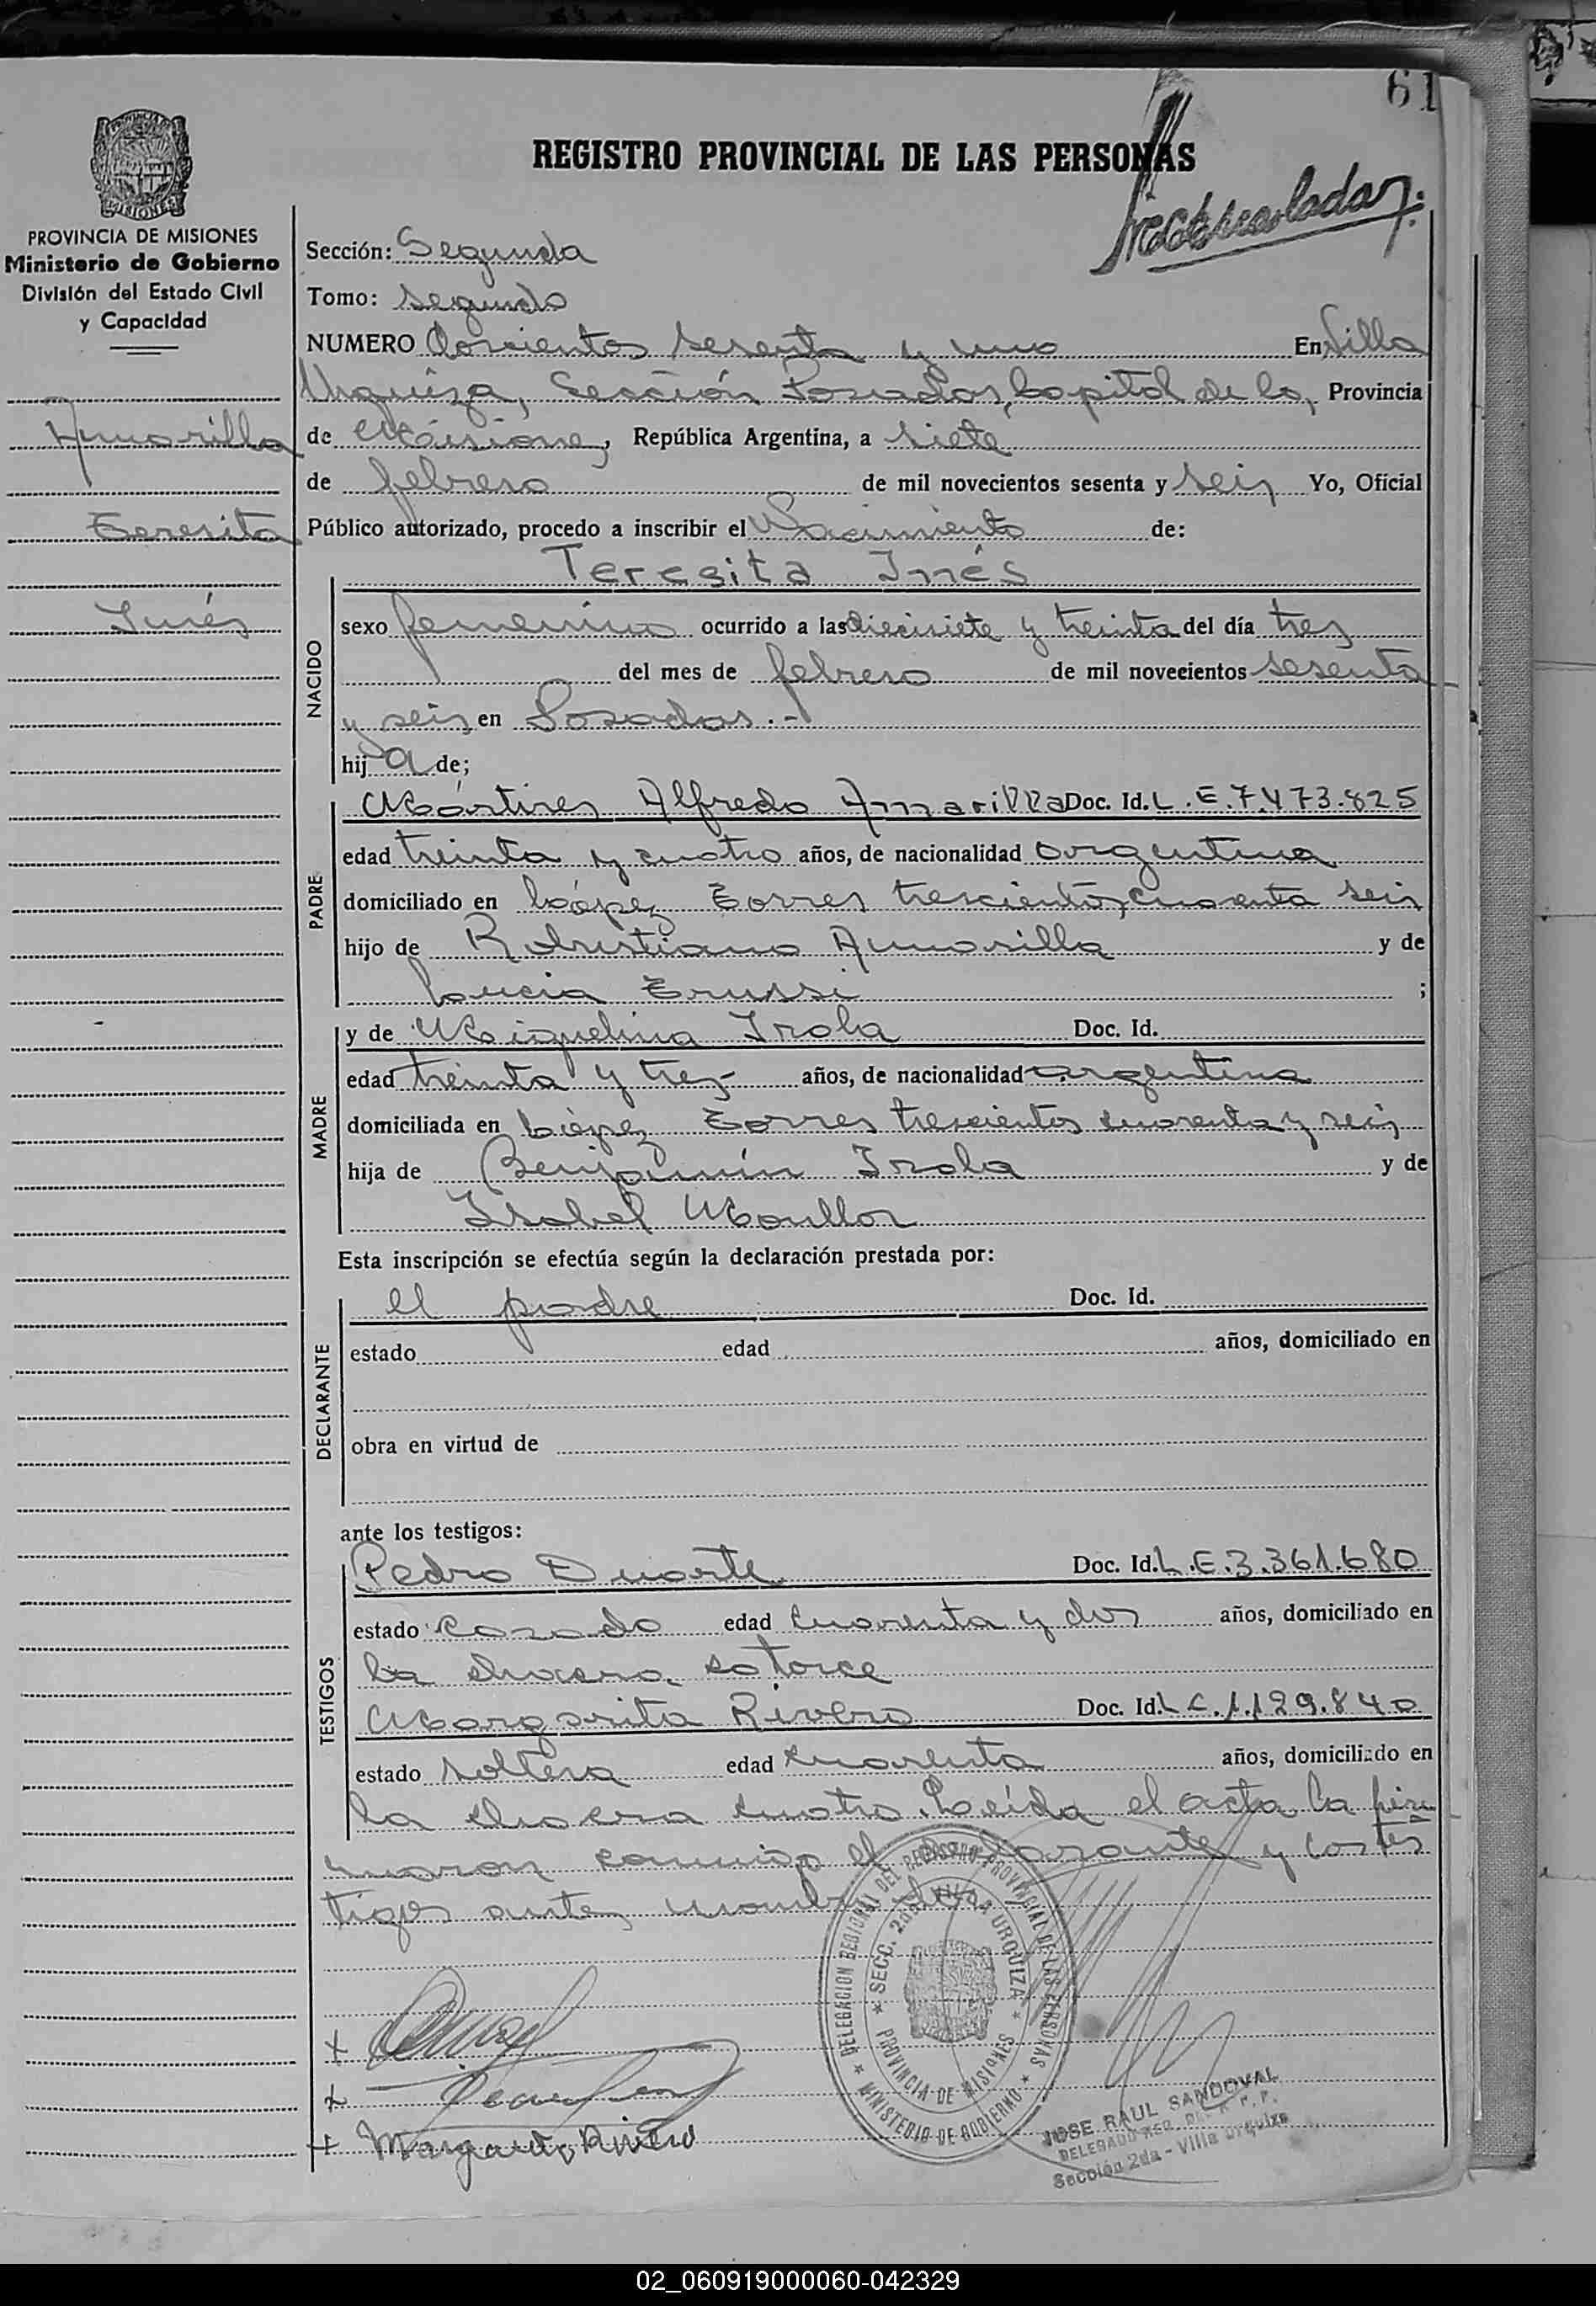 61
REGISTRO PROVINCIAL DE LAS PERSONAS
MISIONES
PROVINCIA DE MISIONES
Ministerio de Gobierno
División del Estado Civil
y Capacidad
Amarilla
Teresita
Inés
Sección: Segunda
Tomo: Segundo
NUMERO Doscientos sesenta y uno En Villa
Urquiza, Sección Posadas, Capital de la, Provincia
de Misiones, República Argentina, a siete
de febrero de mil novecientos sesenta y seis Yo, Oficial
Público autorizado, procedo a inscribir el Nacimiento de:
NACIDO
Teresita Inés
sexo femenino ocurrido a las diecisiete y treinta del día tres
del mes de febrero de mil novecientos sesenta
y seis en Posadas.-
hij a de;
PADRE
Mártires Alfredo Amarilla Doc. Id. L.E.7.473.825
edad treinta y cuatro años, de nacionalidad argentina
domiciliado en López Torres trescientos cuarenta seis
hijo de Robustiano Amarilla y de
Lucia Trussi ;
MADRE
y de Miguelina Irala Doc. Id.
edad treinta y tres años, de nacionalidad argentina
domiciliada en López Torres trescientos cuarenta y seis
hija de Benjamín Irala y de
Isabel
Esta inscripción se efectúa según la declaración prestada por:
DECLARANTE
el padre Doc. Id.
estado edad años, domiciliado en
obra en virtud de
ante los testigos:
TESTIGOS
Pedro Duarte Doc. Id. L.E.3.361.680
estado casado edad cuarenta y dos años, domiciliado en
la chacra catorce
Margarita Rivero Doc. Id. L C.1.129.840
estado soltera edad cuarenta años, domiciliado en
la chacra cuatro. Leída el acta la fir
maron conmigo el declarante y los tes
tigos antes
DELEGACION REGIONAL DEL REGISTRO PROVINCIAL DE LAS PERSONAS
MINISTERIO DE GOBIERNO
SECC. 2da VILLA URQUIZA
PROVINCIA DE MISIONES
Margarita Rivero
JOSE RAUL SANDOVAL
DELEGADO REG. DEL R. P. P.
Sección 2da - Villa Urquiza
02_060919000060-042329